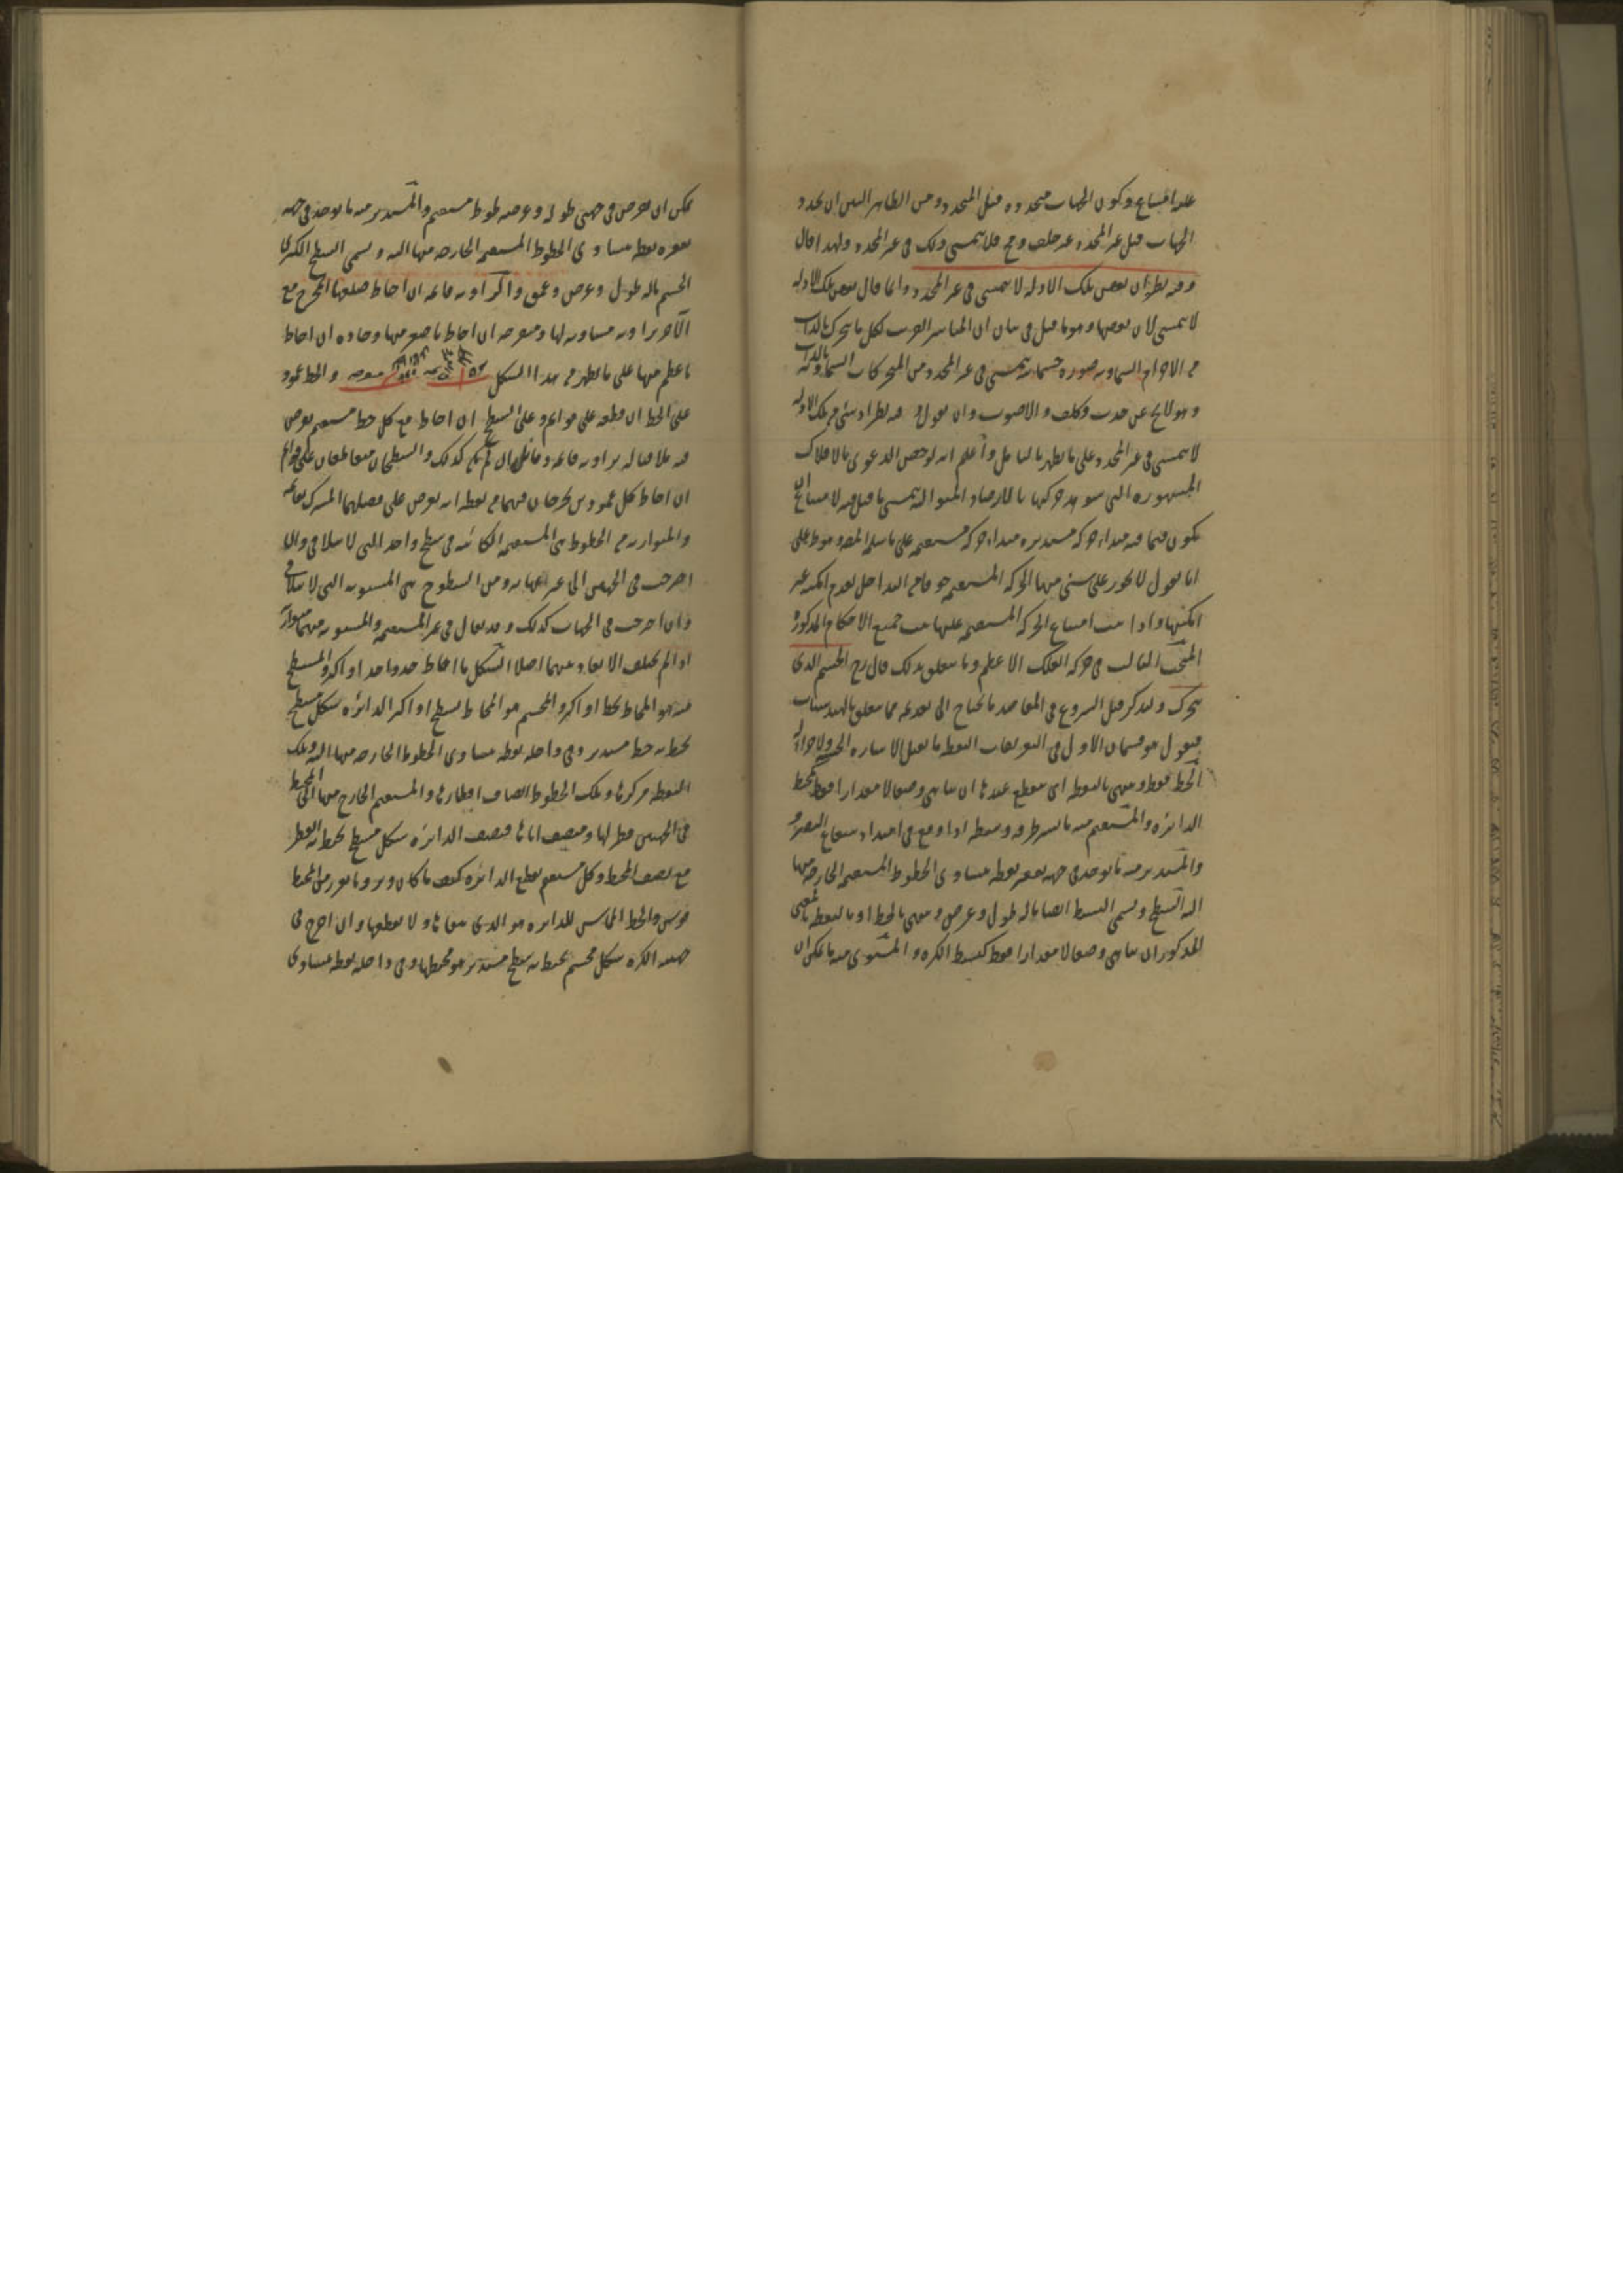 عليه امتناع وتكون الجهات متحدده قبل المحدد ومن الظاهر البين ان تحدد
الجهات قبل غير المحدد غير خلف وح فلا يتمشى ذلك في غير المحدد ولهذا قال
وفيه نظر ان بعض تلك الادلة لا يتمشى في غير المحدد وانما قال بعض تلك الادلة
لا يتمشى لان بعضها وهو ما قيل في بيان ان المباشر القريب لكل ما يتحرك بالذات
من الاجرام السماويه صوره جسمانيه يتمشى في غير المحدد من المتحركات السماويه بالذات
وهو لايح عن حدث وكلف والاصوب وان يقول وفيه نظر اذ شئ من تلك الادلة
لا يتمشى في غير المحدد على ما يظهر بالتامل واعلم انه لو خص الدعوى بالافلاك
المشهوره التي شوهد حركتها بالارصاد المتواليه يتمشى ما قيل فيه لامتناع ان
يكون فيما فيه مبداء حركه مستديره مبداء حركه مستقيمه على ما سلمه المصـ
انا نقول لا يجوز على شئ منها الحركه المستقيمه
امكنتها واذا ثبت امتناع الحركه المستقيمه عليها ثبت جميع الاحكام المذكوره
المبحث الثالث في حركه الفلك الاعظم وما يتعلق بذلك قال رح الجسم الذي
يتحرك ولنذكر قبل الشروع في المقاصد ما يحتاج الى تقدمه مما يتعلق بالهندسيات
فنقول هو قسمان الاول في التعريفات النقطه ما يقبل الاشاره الحسيه ولا جزء له
الخط طول فقط وينتهي بالنقطه اي ينقطع عندها ان تناهى وضعا لا مقدارا فقط كمحيط
الدايره والمستقيم منه ما يستر طرفه وسطه اذا وقع في امتداد شعاع البصر
والمستدير منه ما يوجد في جهه تقعره نقطه يتساوى الخطوط المستقيمه الخارجه منها
اليه السطح ويسمى البسيط ايضا ما له طول وعرض وينتهي بالخط او بالنقطه بالمعنى
المذكور ان تناهى وضعا لا مقدارا فقط كبسيط الكره والمستوى منه ما يمكن ان
يمكن ان يفرض في جهتي طوله وعرضه خطوط مستقيمه والمستدير منه ما يوجد في جهه
تقعره نقطه يتساوى الخطوط المستقيمه الخارجه منها اليه ويسمى السطح الكرى
الجسم ما له طول وعرض وعمق والزاويه قايمه ان احاط ضلعها المخرج مع
الاخر بزاويه مساويه لها ومنفرجه ان احاط باصغر منها وحاده ان احاط
باعظم منها على ما يظهر من هذا الشكل منفرجه والخط عمود
على الخط ان قطعه على قوائم وعلى السطح ان احاط مع كل خط مستقيم يفرض
فيه ملاقيا له بزاويه قايمه ومائل ان لم يكن كذلك والسطحان متقاطعان على قوائم
ان احاط كل عمودين يخرجان فيهما من نقطه يفرض على فصلهما المشترك بقائمه
والمتوازيه من الخطوط هي المستقيمه الكائنه في سطح واحد التي لا يتلاقى وان
اخرجت في الجهتين الى غير النهايه ومن السطوح هي المستويه التي لا يتلاقى
وان اخرجت في الجهات كذلك وقد يقال في غير المستقيمه والمستويه منهما متوازيه
اذا لم يختلف الابعاد بينهما اصلا الشكل ما احاط به حد واحد او اكثر والمسطح
منه هو المحاط بخط او اكثر والمجسم هو المحاط بسطح او اكثر الدائره شكل مسطح
يحيط به خط مستدير وفي داخله نقطه يتساوى الخطوط الخارجه منها اليه وتلك
النقطه مركزها وتلك الخطوط انصاف اقطارها والمستقيم الخارج منها الى المحيط
في الجهتين قطر لها ومنصف اياها ونصف الدائره شكل مسطح يحيط به القطر
مع نصف المحيط وكل مستقيم يقطع الدائره كيف ما كان وتر وما يفرز من المحيط
قوس والخط المماس للدائره هو الذي يلقاها ولا يقطعها وان اخرج في
جهتيه الكره شكل مجسم يحيط به سطح مستدير هو محيطها وفي داخله نقطه يتساوى